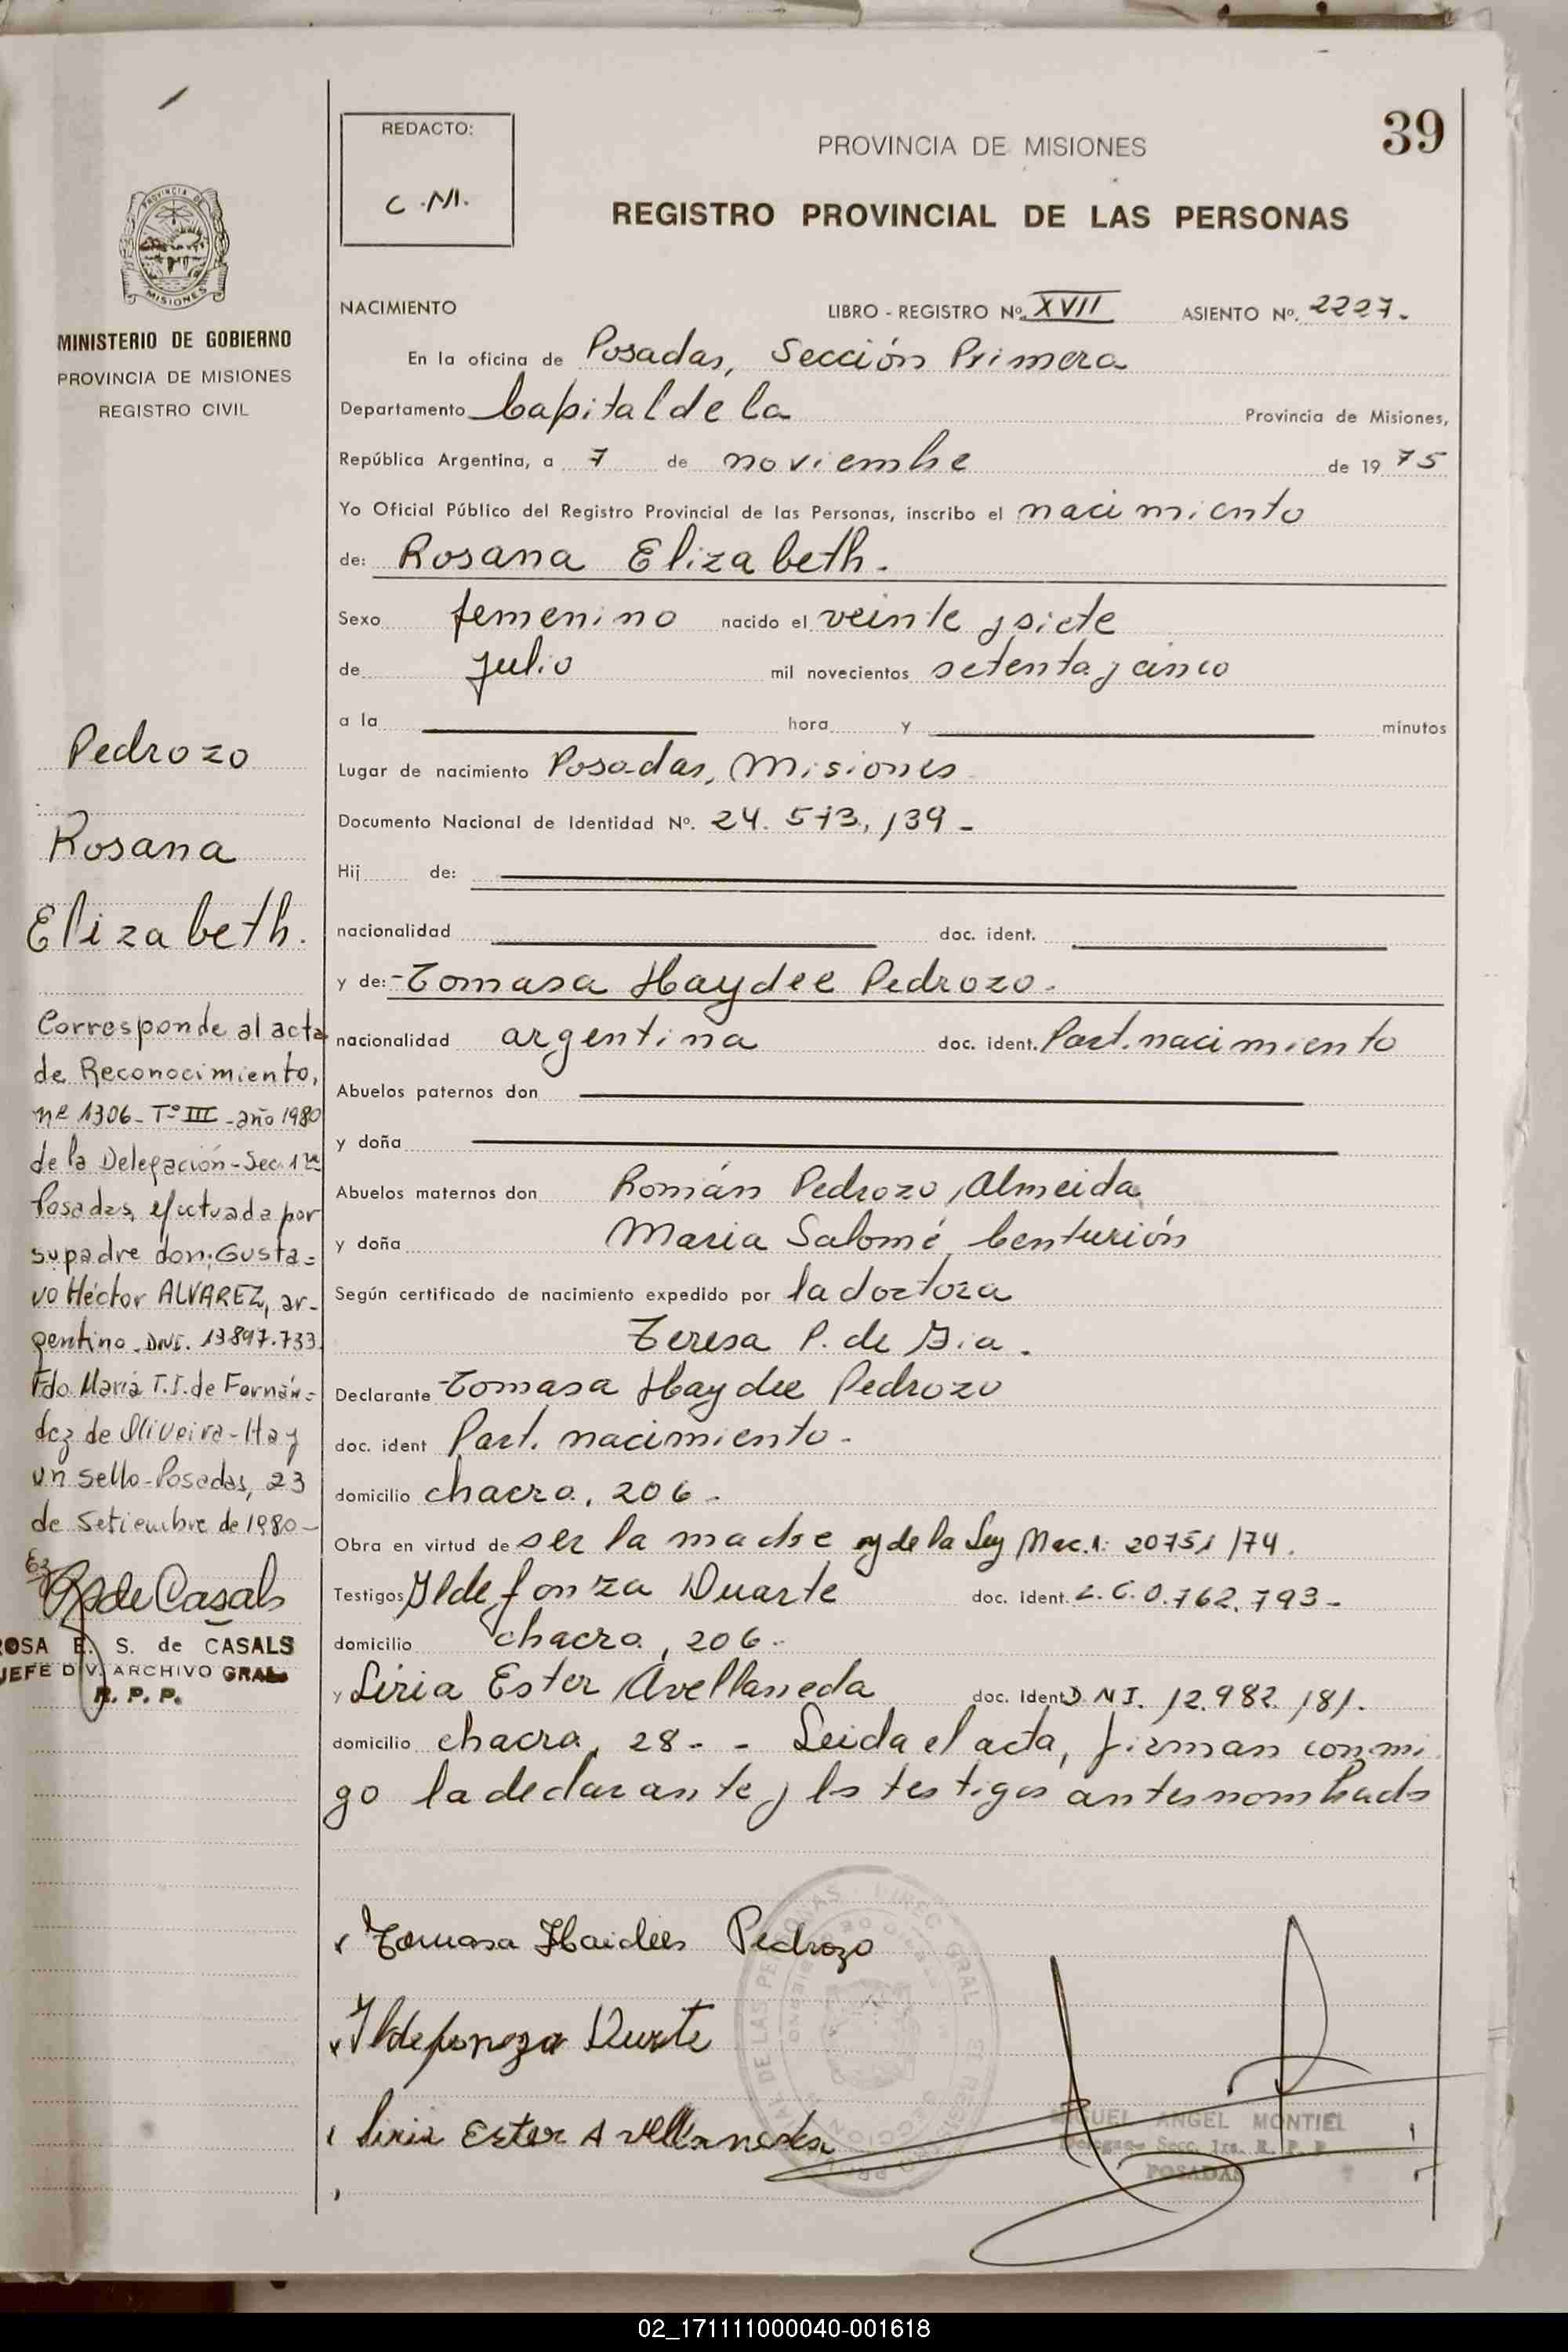 39
REDACTO:
C.M.
PROVINCIA DE MISIONES
REGISTRO PROVINCIAL DE LAS PERSONAS
MISIONES
MINISTERIO DE GOBIERNO
PROVINCIA DE MISIONES
REGISTRO CIVIL
NACIMIENTO LIBRO - REGISTRO Nº. XVII ASIENTO Nº. 2227.
En la oficina de Posadas, Sección Primera
Departamento Capital de la Provincia de Misiones,
República Argentina, a 7 de noviembre de 1975
Yo Oficial Público del Registro Provincial de las Personas, inscribo el nacimiento
de: Rosana Elizabeth.
Sexo femenino nacido el veinte y siete
de julio mil novecientos setenta y cinco
a la hora y minutos
Lugar de nacimiento Posadas, Misiones
Documento Nacional de Identidad Nº. 24.573.139-
Hij de:
nacionalidad doc. ident.
y de: - Tomasa Haydee Pedrozo.
nacionalidad argentina doc. ident. Part. nacimiento
Abuelos paternos don
y doña
Abuelos maternos don Román Pedrozo, Almeida
y doña Maria Salomé Centurión
Según certificado de nacimiento expedido por la doctora
Teresa P. de Gia.
Declarante Tomasa Haydee Pedrozo
doc. ident Part. nacimiento-
domicilio chacra, 206-
Obra en virtud de ser la madre y de la Ley Nac. 20751/74.
Testigos Ildefonza Duarte doc. ident. L.C.0.762.793-
domicilio chacra, 206-
y Liria Ester Avellaneda doc. ident DNI. 12.982.181.
domicilio chacra, 28- - Leida el acta, firman conmi
go la declarante y los testigos antesnombrados
Tomasa Haidée Pedrozo
Ildefonza Duarte
Liria Ester Avellaneda
MIGUEL ANGEL MONTIEL
Delegado Secc. 1ra. R. P. P.
POSADAS
Pedrozo
Rosana
Elizabeth.
Corresponde al acta
de Reconocimiento,
nº 1306- Tº III -año 1980
de la Delegación-Sec. 1ra
Posadas, efectuada por
su padre don: Gusta=
vo Héctor ALVAREZ, ar-
gentino. DNI. 13.897.733.
Fdo. Maria T.I. de Fernán=
dez de Oliveira-Hay
un sello-Posadas, 23
de Setiembre de 1980-
de Casals
ROSA E. S. de CASALS
JEFE DIV. ARCHIVO GRAL
R. P. P.
02_171111000040-001618